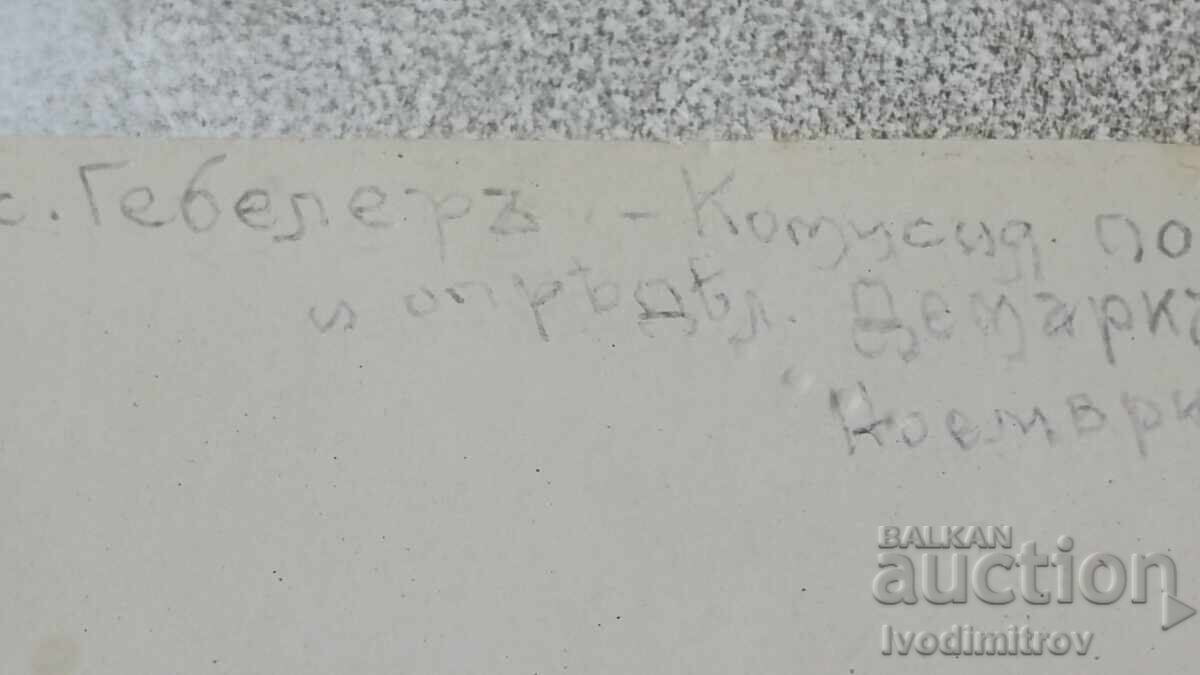 с. Гебелеръ - Комисия по
и опрѣдѣл. Демарка
Ноември
BALKAN
auction
Ivodimitrov